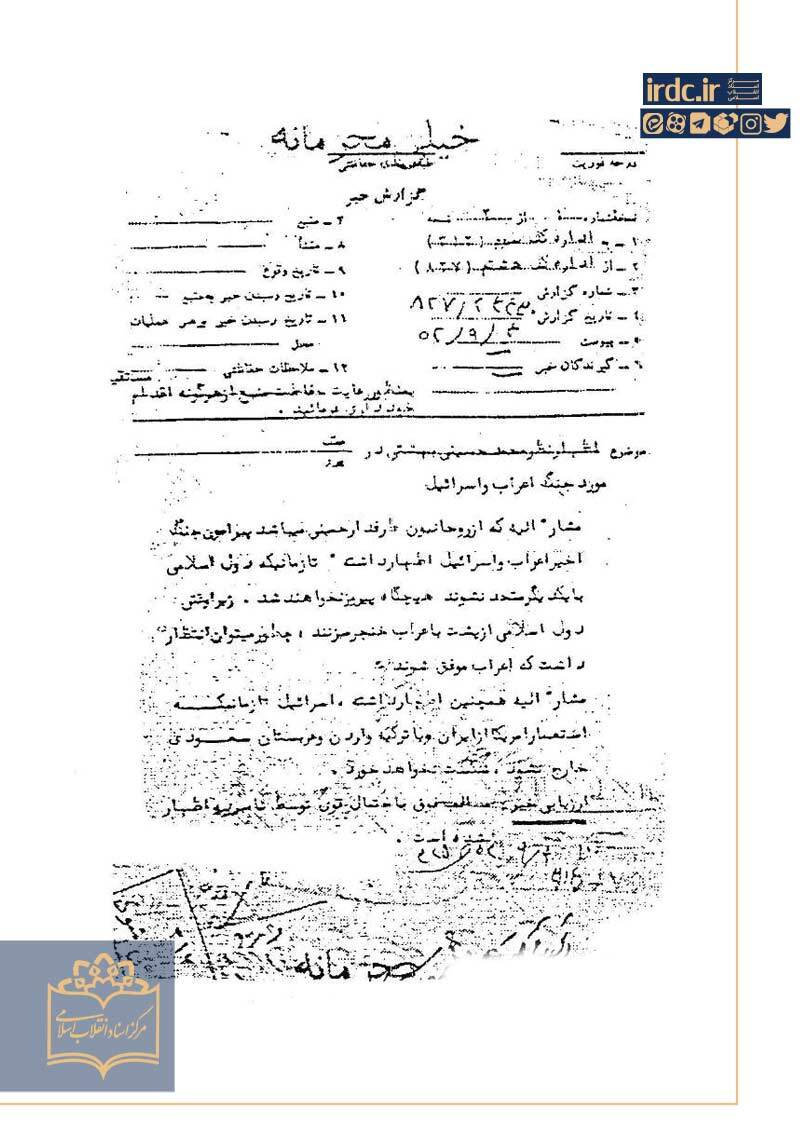 irdc.ir
مرکز
اسناد
انقلاب
اسلامی
خیلی محرمانه
طبقه‌بندی حفاظتی
درجه فوریت
گزارش خبر
نسخه شماره از ۲ نسخه
۱ - به اداره کل سوم (۳۱۲)
۲ - از اداره کل هشتم (۸۲۷)
۳ - شماره گزارش
۴ - تاریخ گزارش ۵۲/۹/۴
۵ - پیوست
۶ - گیرندگان خبر
۷ - منبع
۸ - منشأ
۹ - تاریخ وقوع
۱۰ - تاریخ رسیدن خبر به منبع
۱۱ - تاریخ رسیدن خبر به رهبر عملیات
محل
۱۲ - ملاحظات حفاظتی
بمنظور رعایت حفاظت منبع از هرگونه اقدام مستقیم
خودداری فرمائید .
موضوع محمد حسینی بهشتی در
مورد جنگ اعراب و اسرائیل
مشارٌ الیه که از روحانیون طرفدار خمینی میباشد پیرامون جنگ
اخیر اعراب و اسرائیل اظهار داشته " تا زمانیکه دول اسلامی
با یکدیگر متحد نشوند هیچگاه پیروز نخواهند شد . زیرا وقتی
دول اسلامی از پشت باعراب خنجر میزنند ، چطور میتوان انتظار
داشت که اعراب موفق شوند "
مشارٌ الیه همچنین اظهار داشته ، اسرائیل تا زمانیکه
استعمار امریکا از ایران و یا ترکیه و اردن و عربستان سعودی
خارج نشود ، شکست نخواهد خورد .
ارزیابی خبر مطالب فوق باحتمال قوی توسط نامبرده اظهار
شده است .
محرمانه
مرکز اسناد انقلاب اسلامی